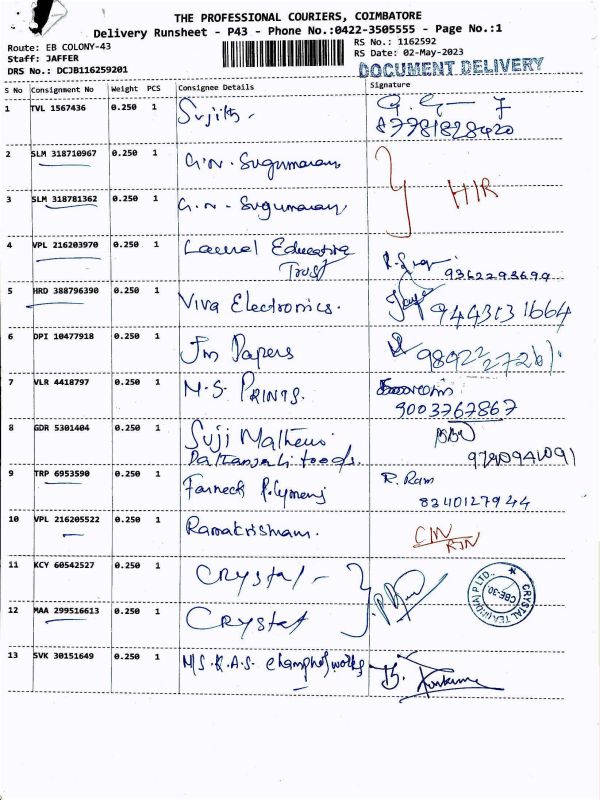 THE PROFESSIONAL COURIERS, COIMBATORE
Delivery Runsheet - P43 - Phone No.:0422-3505555 - Page No.:1
Route: EB COLONY-43 RS No.: 1162592
Staff: JAFFER RS Date: 02-May-2023
DRS No.: DCJB116259201 DOCUMENT DELIVERY
S No Consignment No Weight PCS Consignee Details Signature
1 TVL 1567436 0.250 1 Sujith.
87781828420
2 SLM 318710967 0.250 1 G.N. Sugumaran
3 SLM 318781362 0.250 1 G.N. Sugumaran
4 VPL 216203970 0.250 1 Laurel Educative
Trust 9362293699
5 HRD 388796390 0.250 1 Viva Electronics. 9443531664
6 DPI 10477918 0.250 1 Jm Papers
7 VLR 4418797 0.250 1 M.S. PRINTS.
9003767867
8 GDR 5301404 0.250 1 Suji Mathews
foods. 9790941091
9 TRP 6953590 0.250 1 R. Ram
8240127944
10 VPL 216205522 0.250 1 Ramakrishnam.
11 KCY 60542527 0.250 1 Crystal -
12 MAA 299516613 0.250 1 Crystal
CBE-30
13 SVK 30151649 0.250 1 M/S.K.A.S.